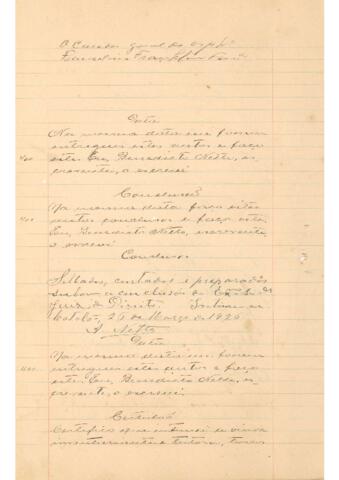 O Curador geral de Orphˢ
Franklin
Data
Na mesma data me foram
entregues estes autos e faço
este. Eu, Benedicto Netto, es
crevente, o escrevi
Conclusão
Na mesma data faço estes
autos conclusos e faço este.
Eu, Benedicto Netto, escrevente
o escrevi
Conclusos
Sellados, contados e preparados
subam a conclusão do Exmº Sr. Dr.
Juiz de Direito.
26 de Março de 1926
A. Netto
Data
Na mesma data me foram
entregues estes autos e faço
este. Eu, Benedicto Netto, es
crevente, o escrevi.
Certidão
Certifico que intimei a viuva
inventariante e tutora,